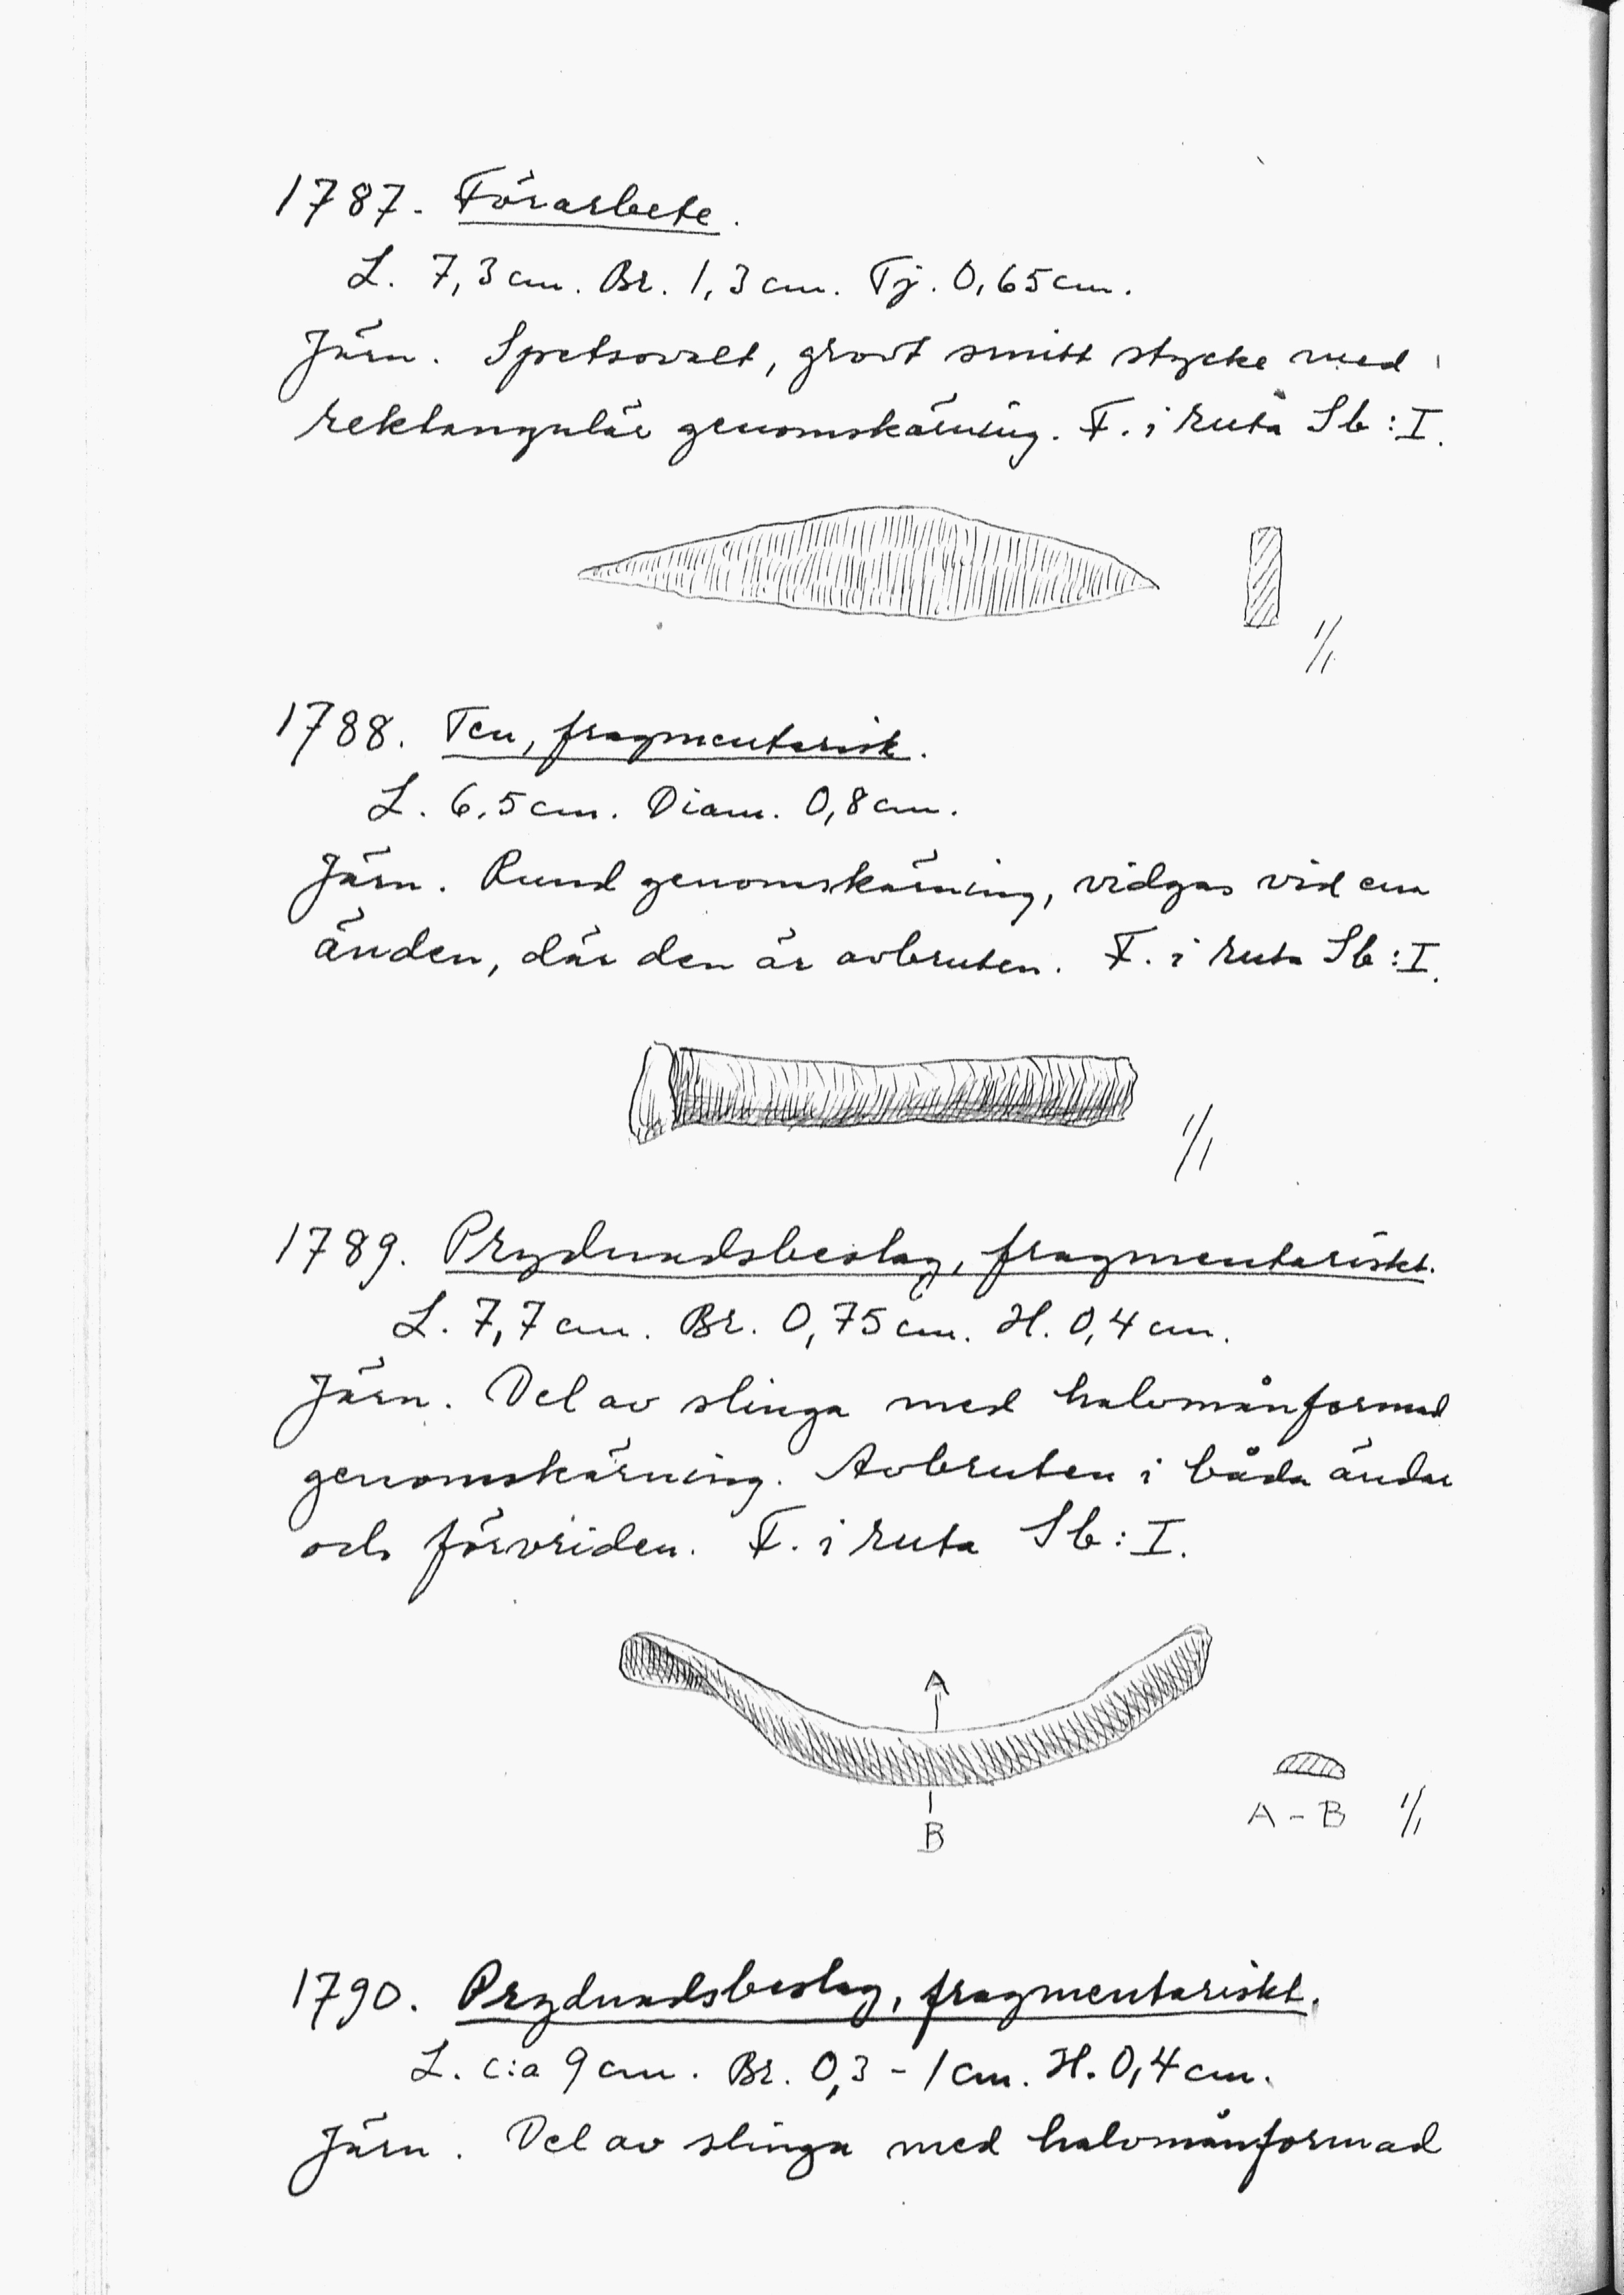 1787. Förarbete.
L. 7,3 cm. Br. 1,3 cm. Tj. 0,65 cm.
Järn. Spetsovalt, grovt smitt stycke med
rektangulär genomskärning. F. i ruta Sb:I.
1/1
1788. Ten, fragmentarisk.
L. 6,5 cm. Diam. 0,8 cm.
Järn. Rund genomskärning, vidgas vid ena
änden, där den är avbruten. F. i ruta Sb:I.
1/1
1789. Prydnadsbeslag, fragmentariskt.
L. 7,7 cm. Br. 0,75 cm. H. 0,4 cm.
Järn. Del av slinga med halvmånformad
genomskärning. Avbruten i båda ändar
och förvriden. F. i ruta Sb:I.
A
B
A-B 1/1
1790. Prydnadsbeslag, fragmentariskt.
L. c:a 9 cm. Br. 0,3-1 cm. H. 0,4 cm.
Järn. Del av slinga med halvmånformad